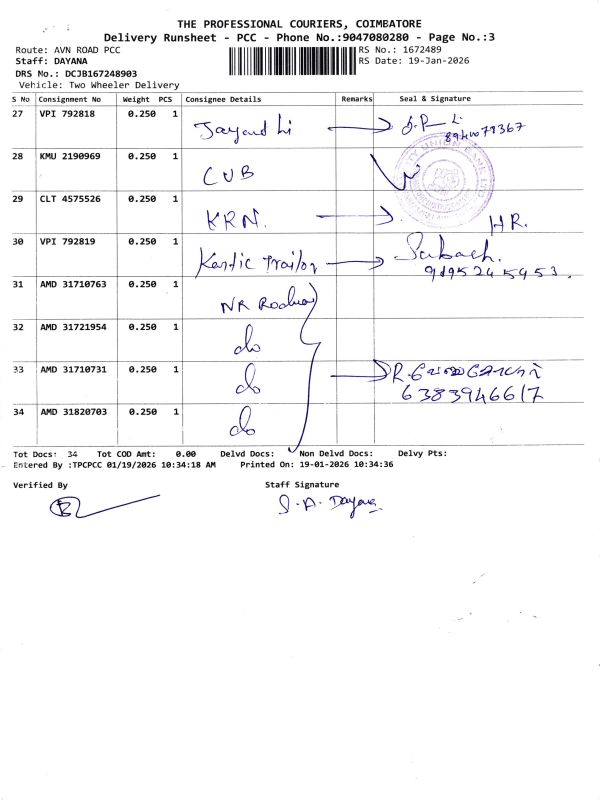 THE PROFESSIONAL COURIERS, COIMBATORE
Delivery Runsheet - PCC - Phone No.:9047080280 - Page No.:3
Route: AVN ROAD PCC
Staff: DAYANA
DRS No.: DCJB167248903
Vehicle: Two Wheeler Delivery
RS No.: 1672489
RS Date: 19-Jan-2026
S No Consignment No Weight PCS Consignee Details Remarks Seal & Signature
27 VPI 792818 0.250 1
28 KMU 2190969 0.250 1 CUB
29 CLT 4575526 0.250 1 KRN. HR.
30 VPI 792819 0.250 1 Kartic Trailor
9195245953.
31 AMD 31710763 0.250 1 NR
32 AMD 31721954 0.250 1 do
33 AMD 31710731 0.250 1 do
6383946617
34 AMD 31820703 0.250 1 do
Tot Docs: 34 Tot COD Amt: 0.00 Delvd Docs: Non Delvd Docs: Delvy Pts:
Entered By :TPCPCC 01/19/2026 10:34:18 AM Printed On: 19-01-2026 10:34:36
Verified By Staff Signature
S.A. Dayana